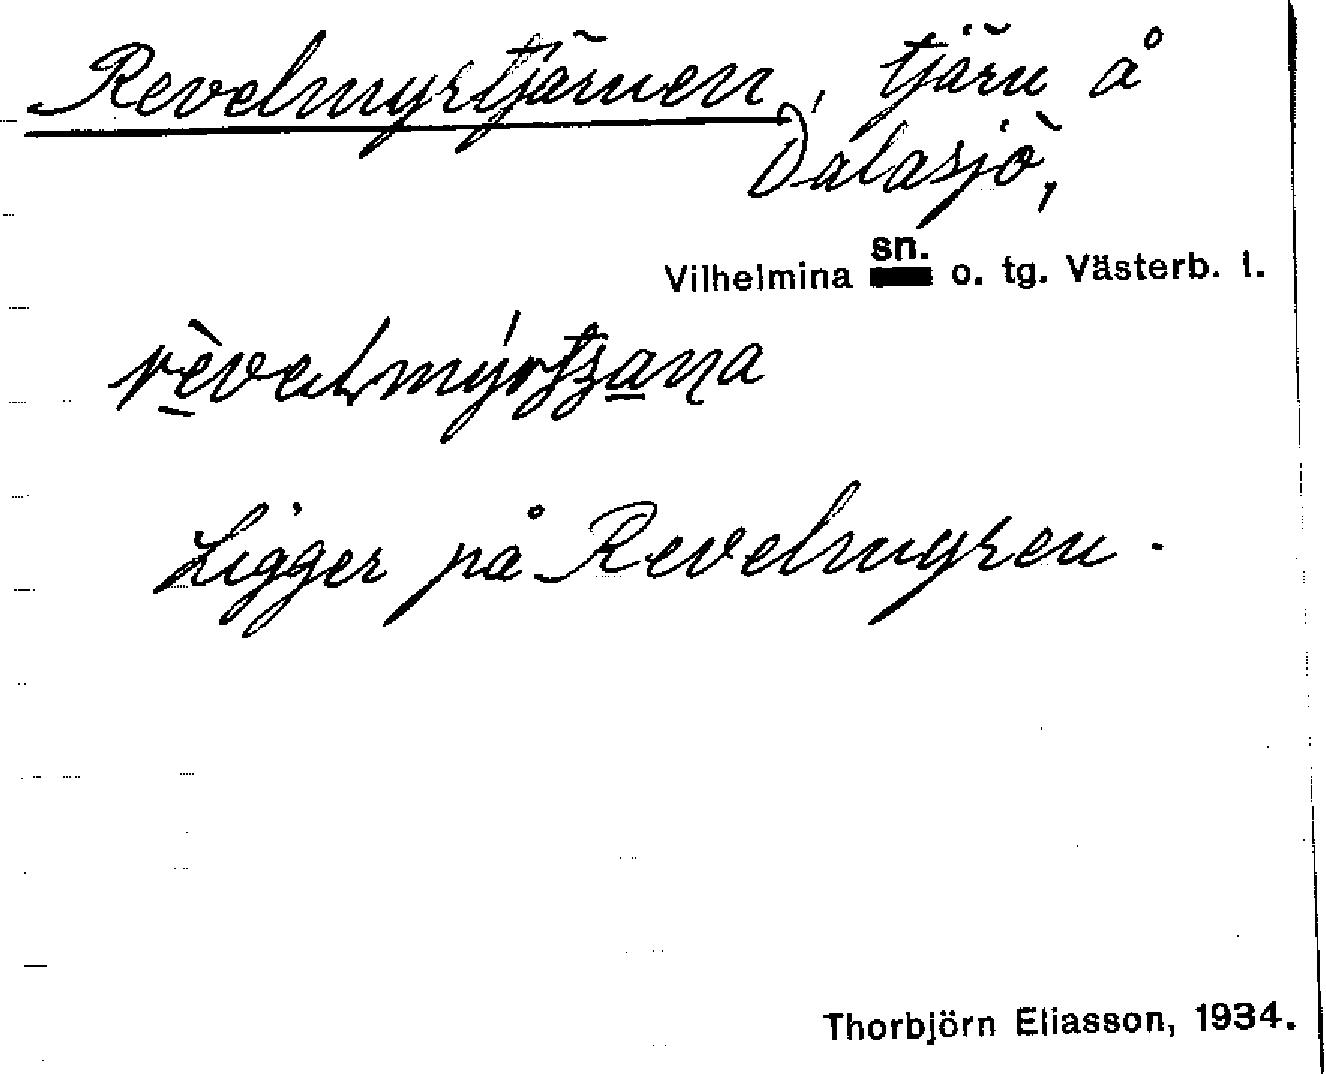 Revelmyrtjärnen, tjärn å
Dalasjö,
Vilhelmina sn. o. tg. Västerb. l.
Ligger på Revelmyren.
Thorbjörn Eliasson, 1934.